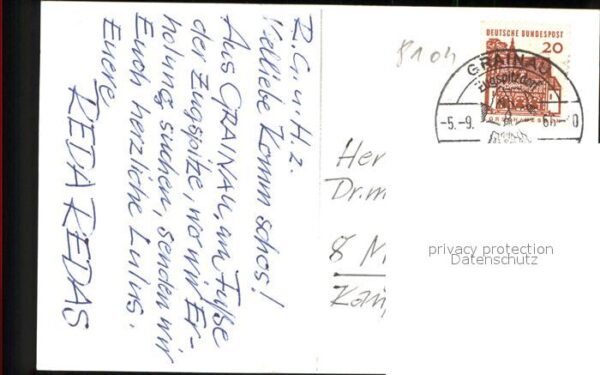 R.G.u.H.z.
Vielliebe Komm schos!
Aus GRAINAU, am Fuße
der Zugspitze, wo wir Er-
holung suchen, senden wir
Euch herzliche Lulus.
Euere
REDA REDAS
8104
DEUTSCHE BUNDESPOST
20
GRAINAU
Zugspitzdorf
-5.-9.
Her
Dr.m
8 M
privacy protection
Datenschutz